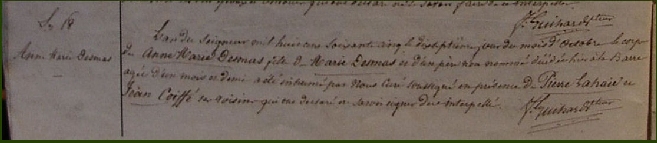 J. Guihard Rteur
S. 18
Anne Marie Desmas
L'an du Seigneur mil huit cent soixante cinq le dix septième jour du mois d'Octobre le corps
de Anne Marie Desmas fille de Marie Desmas et d'un père non nommé décédée hier à la Barre
agée d'un mois et demi a été inhumé par Nous Curé soussigné en présence de Pierre Lahaie et
Jean Coiffé ses voisins qui ont déclaré ne savoir signer de ce interpellé.
J. Guihard Rteur